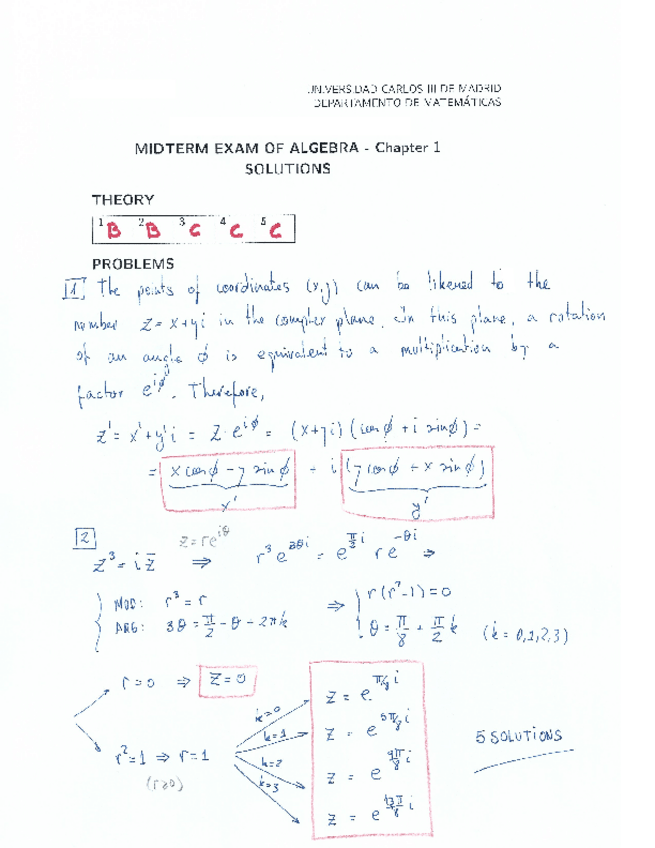 UNIVERSIDAD CARLOS III DE MADRID
DEPARTAMENTO DE MATEMÁTICAS
MIDTERM EXAM OF ALGEBRA - Chapter 1
SOLUTIONS
THEORY
1 B 2 B 3 C 4 C 5 C
PROBLEMS
1 The points of coordinates (x,y) can be likened to the
number z = x+yi in the complex plane. In this plane, a rotation
of an angle ϕ is equivalent to a multiplication by a
factor e^{iϕ}. Therefore,
z' = x'+y'i = z·e^{iϕ} = (x+yi)(cosϕ + i sinϕ) =
= x cosϕ - y sinϕ + i (y cosϕ + x sinϕ)
x' y'
2 z = re^{iθ}
z³ = i z̄ ⇒ r³ e^{3θi} = e^{π/2 i} r e^{-θi} ⇒
MOD: r³ = r ⇒ r(r²-1) = 0
ARG: 3θ = π/2 - θ - 2πk θ = π/8 + π/2 k (k = 0,1,2,3)
r = 0 ⇒ z = 0
r² = 1 ⇒ r = 1
(r≥0)
k=0 z = e^{π/8 i}
k=1 z = e^{5π/8 i}
k=2 z = e^{9π/8 i}
k=3 z = e^{13π/8 i}
5 SOLUTIONS